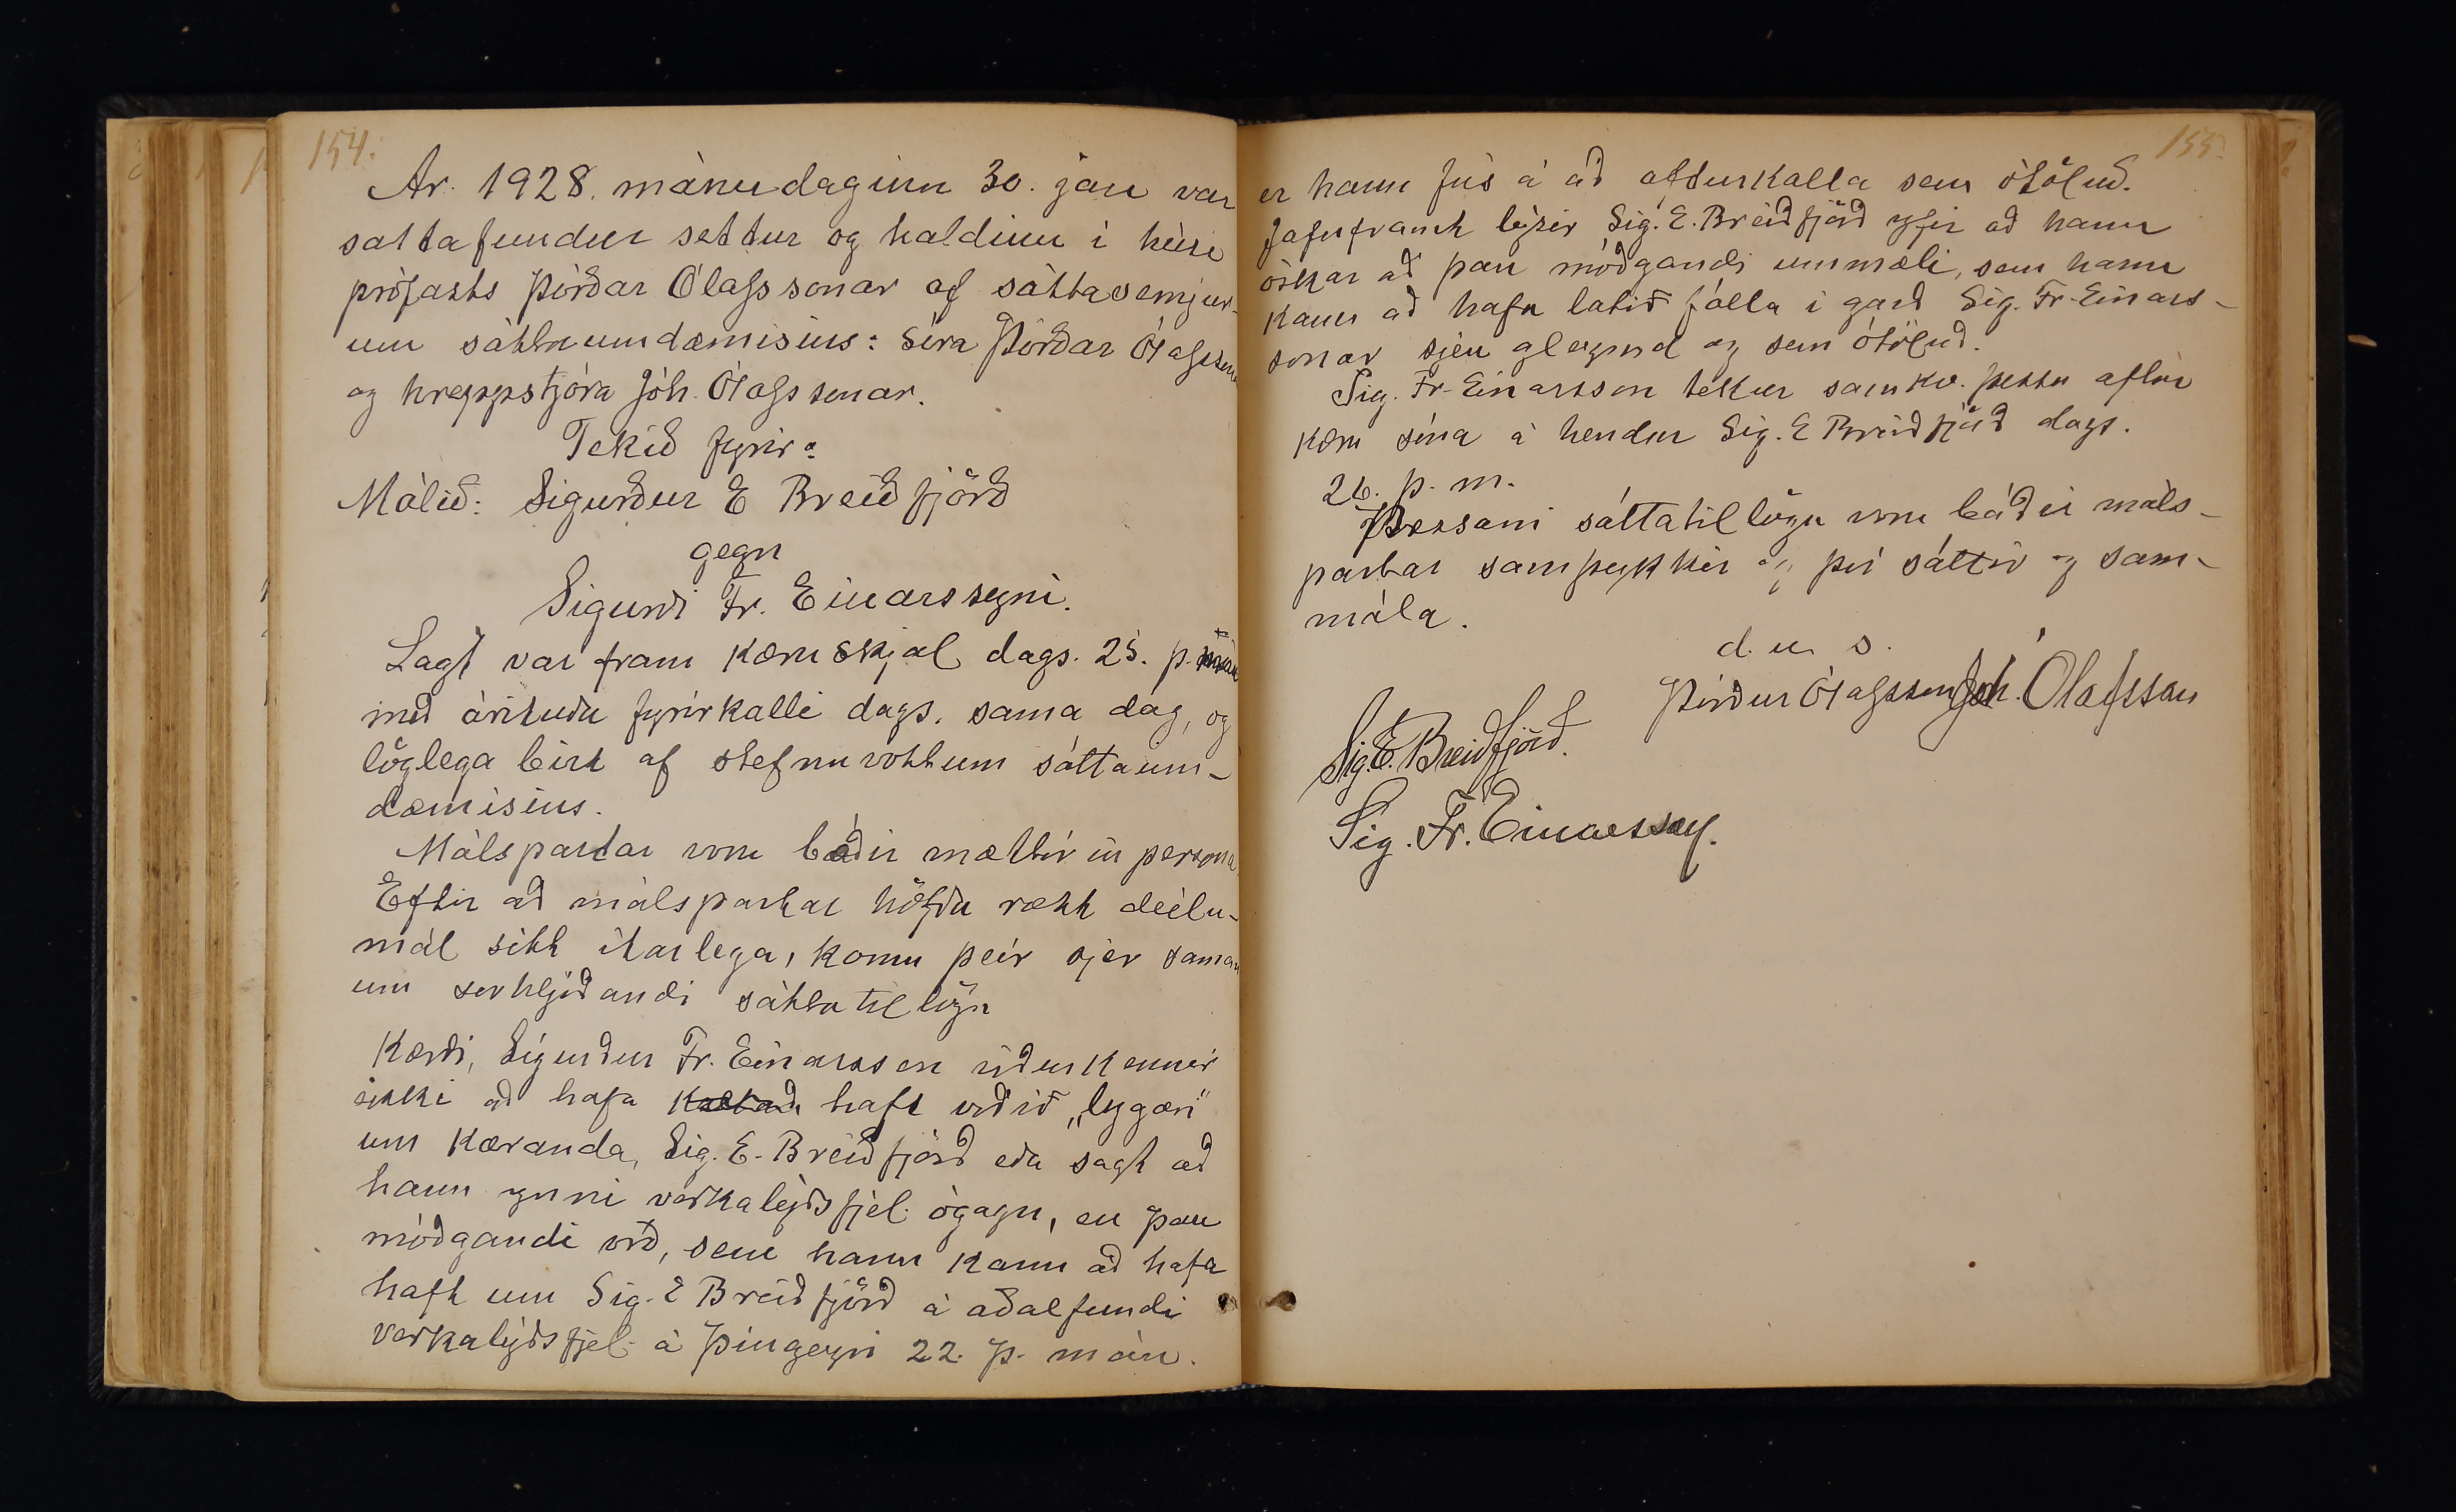 154.
Ár. 1928. mánudaginn 30. jan var
sáttafundur settur og haldinn í húsi
prófasts Þórðar Ólafssonar af sáttasemjur-
um sáttaumdæmisins: Síra Þórðar Ólafsson
og hreppstjóra Jóh. Ólafssonar.
Tekið fyrir:
Málið: Sigurður E Breiðfjörð
gegn
Sigurði Fr. Einarssyni.
Lagt var fram kæruskjal dags. 25. þ. mán
með árituðu fyrirkalli dags. sama dag, og
löglega birt af stefnuvottum sáttaum-
dæmisins.
Málspartar voru báðir mættir in persona.
Eftir að málspartar höfðu rætt deilu-
mál sitt ítarlega, komu þeir sjer saman
um svohljóðandi sáttatillögu
Kærði, Sigurður Fr. Einarsson viðurkennir
ekki að hafa haft orðið „lygari"
um kæranda, Sig. E. Breiðfjörð eða sagt að
hann ynni verkalýðsfjel. ógagn, en þau
móðgandi orð, sem hann kann að hafa
haft um Sig. E Breiðfjörð á aðalfundi
Verkalýðsfjel. á Þingeyri 22. þ. mán.
155.
er hann fús á að afturkalla sem ótöluð.
Jafnframt lýsir Sig. E. Breiðfjörð yfir að hann
óskar að þau móðgandi ummæli, sem hann
kann að hafa látið falla í garð Sig. Fr. Einars-
sonar sjeu gleymd og sem ótöluð.
Sig. Fr. Einarsson tekur samkv. þessu aftur
kæru sína á hendur Sig. E Breiðfjörð dags.
26. þ. m.
Þessari sáttatillögu voru báðir máls-
partar samþykkir og því sáttir og sam-
mála.
d. u. s.
Þórður Ólafsson Jóh. Ólafsson
Sig. E. Breiðfjörð.
Sig. Fr. Einarsson.